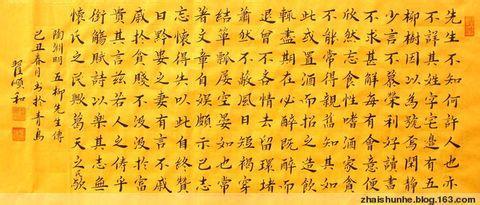 先生不知何許人也亦
不詳其姓字宅邊有五
柳樹因以為號焉閑静
少言不慕榮利好讀書
不求甚解每有會意便
欣然忘食性嗜酒家貧
不能常得親舊知其如
此或置酒而招之造飲
輒盡期在必醉既醉而
退曾不吝情去留環堵
蕭然不蔽風日短褐穿
結簞瓢屢空晏如也常
著文章自娛頗示己志
忘懷得失以此自終贊
曰黔婁之妻有言不戚
戚於貧賤不汲汲於富
貴其言茲若人之儔乎
銜觴賦詩以樂其志無
懷氏之民歟葛天氏之民歟
陶淵明五柳先生傳
己丑春月書於青島
翟順和
zhaishunhe.blog.163.com